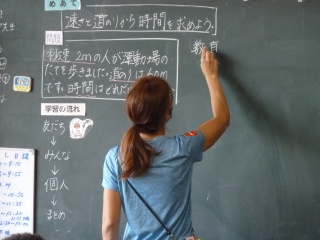 めあて
速さと道のりから時間を求めよう。
問題
秒速2mの人が運動場の
たてを歩きました。道のりは60m
です。時間はどれだけ
教育
学習の流れ
友だち
↓
みんな
↓
個人
↓
まとめ